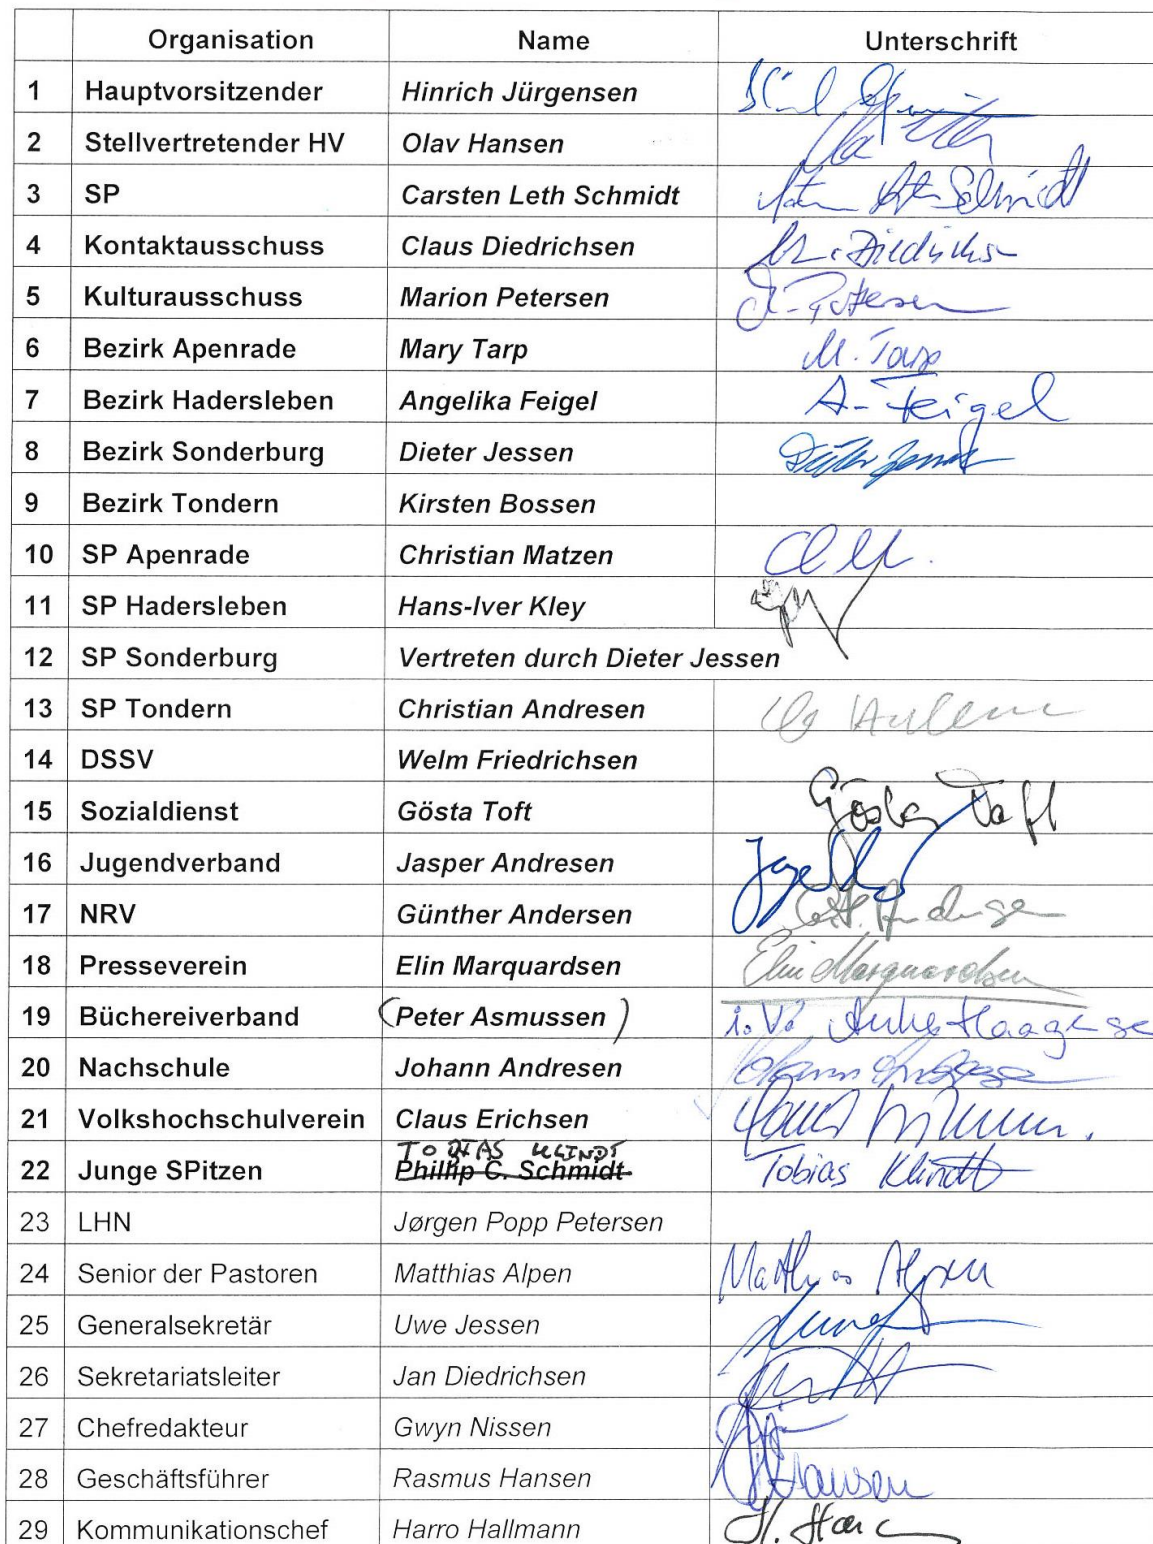 Organisation Name Unterschrift
1 Hauptvorsitzender Hinrich Jürgensen
2 Stellvertretender HV Olav Hansen
3 SP Carsten Leth Schmidt Schmidt
4 Kontaktausschuss Claus Diedrichsen
5 Kulturausschuss Marion Petersen
6 Bezirk Apenrade Mary Tarp M. Tarp
7 Bezirk Hadersleben Angelika Feigel A. Feigel
8 Bezirk Sonderburg Dieter Jessen Dieter Jessen
9 Bezirk Tondern Kirsten Bossen
10 SP Apenrade Christian Matzen
11 SP Hadersleben Hans-Iver Kley
12 SP Sonderburg Vertreten durch Dieter Jessen
13 SP Tondern Christian Andresen
14 DSSV Welm Friedrichsen
15 Sozialdienst Gösta Toft Gösta Toft
16 Jugendverband Jasper Andresen
17 NRV Günther Andersen
18 Presseverein Elin Marquardsen Elin Marquardsen
19 Büchereiverband (Peter Asmussen) i.V.
20 Nachschule Johann Andresen
21 Volkshochschulverein Claus Erichsen
TOBIAS KLINDT
22 Junge SPitzen Phillip C. Schmidt Tobias Klindt
23 LHN Jørgen Popp Petersen
24 Senior der Pastoren Matthias Alpen Matthias Alpen
25 Generalsekretär Uwe Jessen
26 Sekretariatsleiter Jan Diedrichsen
27 Chefredakteur Gwyn Nissen
28 Geschäftsführer Rasmus Hansen Hansen
29 Kommunikationschef Harro Hallmann